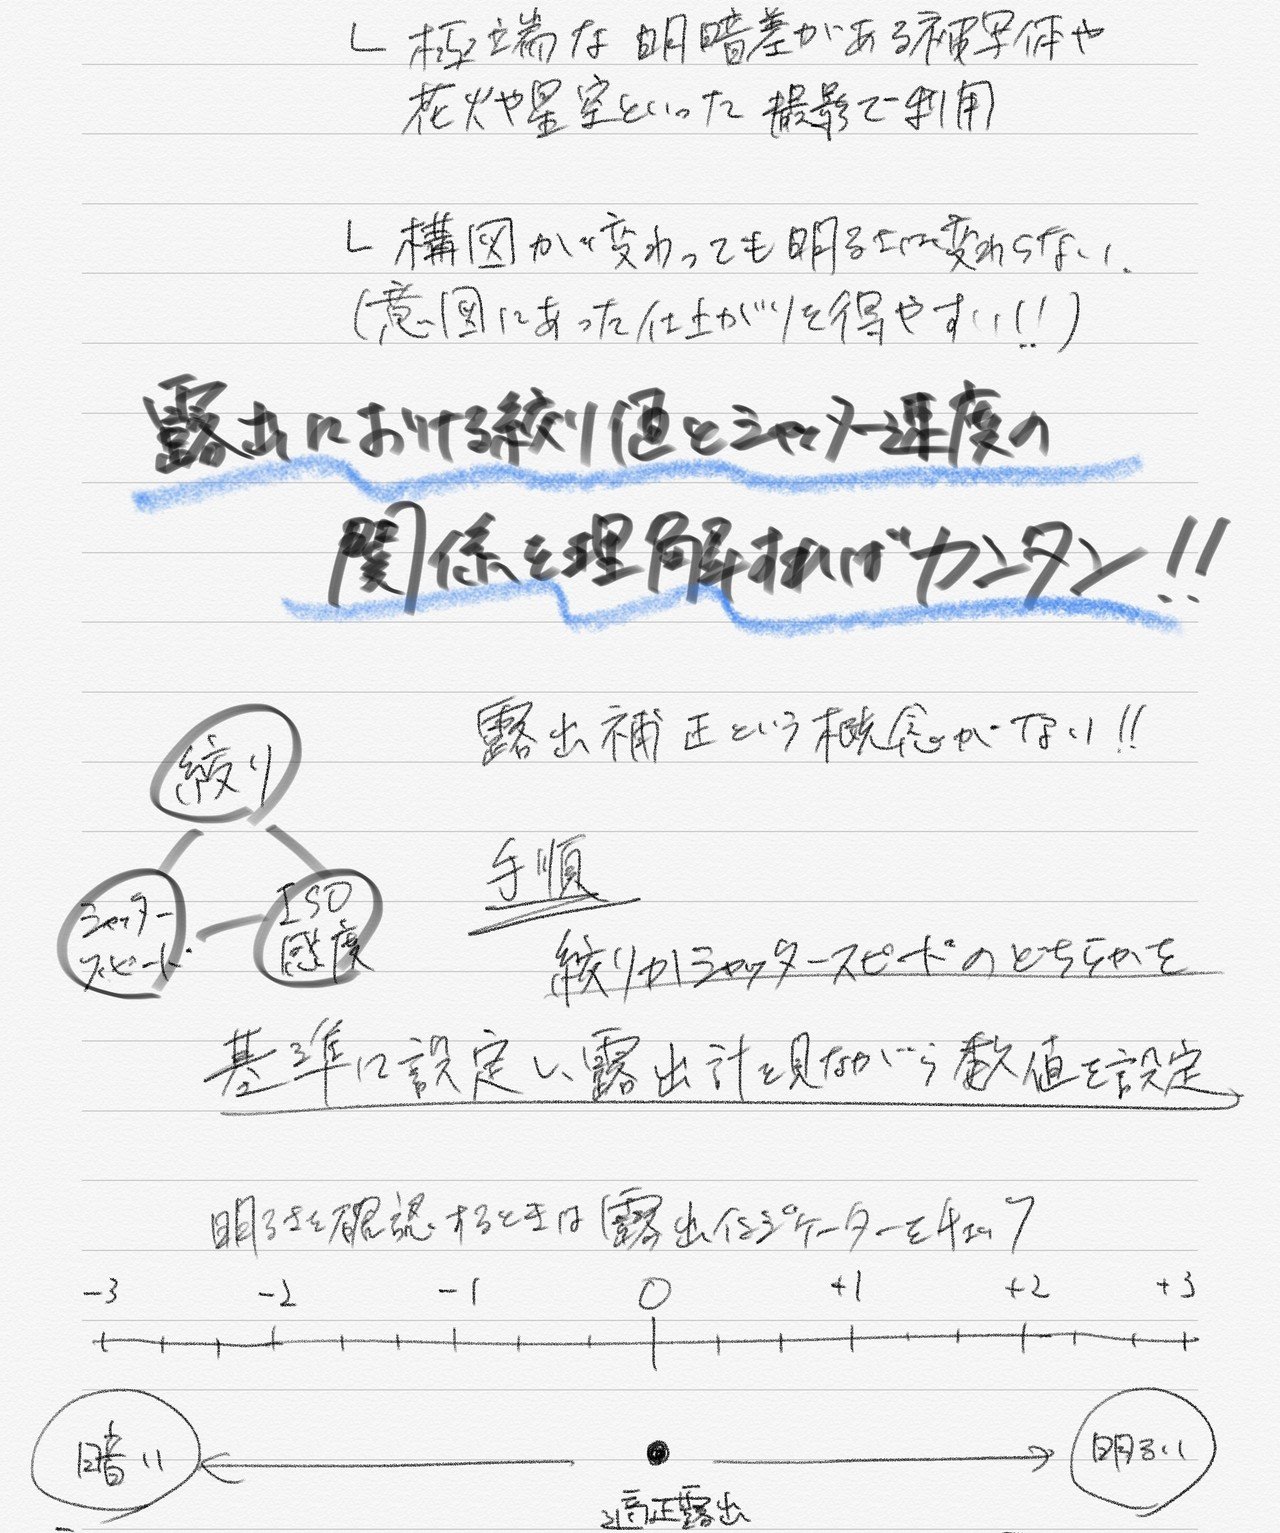 └ 極端な明暗差がある被写体や
花火や星空といった撮影で利用
└ 構図が変わっても明るさは変わらない.
(意図にあった仕上がりを得やすい!!)
露出における絞り値とシャッター速度の
関係を理解すればカンタン!!
露出補正という概念がない!!
絞り
シャッター
スピード
ISO
感度
手順
絞りかシャッタースピードのどちらかを
基準に設定し、露出計を見ながら数値を設定
明るさを確認するときは露出インジケーターをチェック
-3 -2 -1 0 +1 +2 +3
暗い 明るい
適正露出